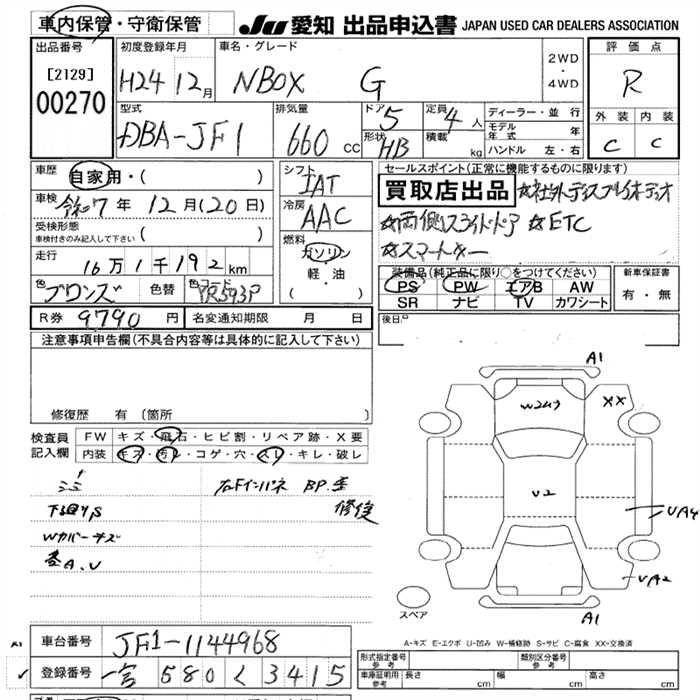 車内保管・守衛保管
JU 愛知 出品申込書 JAPAN USED CAR DEALERS ASSOCIATION
出品番号 初度登録年月 車名・グレード 評価点
[2129] H24 12月 NBOX G 2WD・4WD R
00270
型式 排気量 ドア 定員 ディーラー・並行 外装 内装
DBA-JF1 660cc 5 4人 モデル年式 年
形状 HB 積載 kg ハンドル 左・右 C C
車歴 自家用・( ) シフト IAT セールスポイント(正常に機能するものに限ります)
車検 令和7年12月(20日) 冷房 AAC 買取店出品 ☆社外ディスプレイオーディオ
受検形態 ( ) ☆両側スライドドア ☆ETC
車検付きのみ記入して下さい
燃料 ガソリン・軽油・( ) ☆スマートキー
走行 16万1千192km 装備品(純正品に限り○をつけてください) 新車保証書
色 ブロンズ 色替 色コード YR593P PS PW エアB AW 有・無
SR ナビ TV カワシート
R券 9790円 名変通知期限 月 日 後日
注意事項申告欄(不具合内容等は具体的に記入して下さい)
修復歴 有 (箇所 )
検査員記入欄 FW キズ・飛石・ヒビ割・リペア跡・X要
内装 キズ・汚レ・コゲ・穴・スレ・キレ・破レ
右Fインパネ BP.歪
修復
下廻りS
Wカバーキズ
各A.U
A1
W2ムラ
XX
U2
UA4
UA2
スペア
A1
A-キズ E-エクボ U-凹み W-補修跡 S-サビ C-腐食 XX-交換済
車台番号 JF1-1144968
登録番号 一宮 580 く 3415
形式指定番号 参考 類別区分番号 参考
車庫証明用 参考 長さ cm 幅 cm 高さ cm